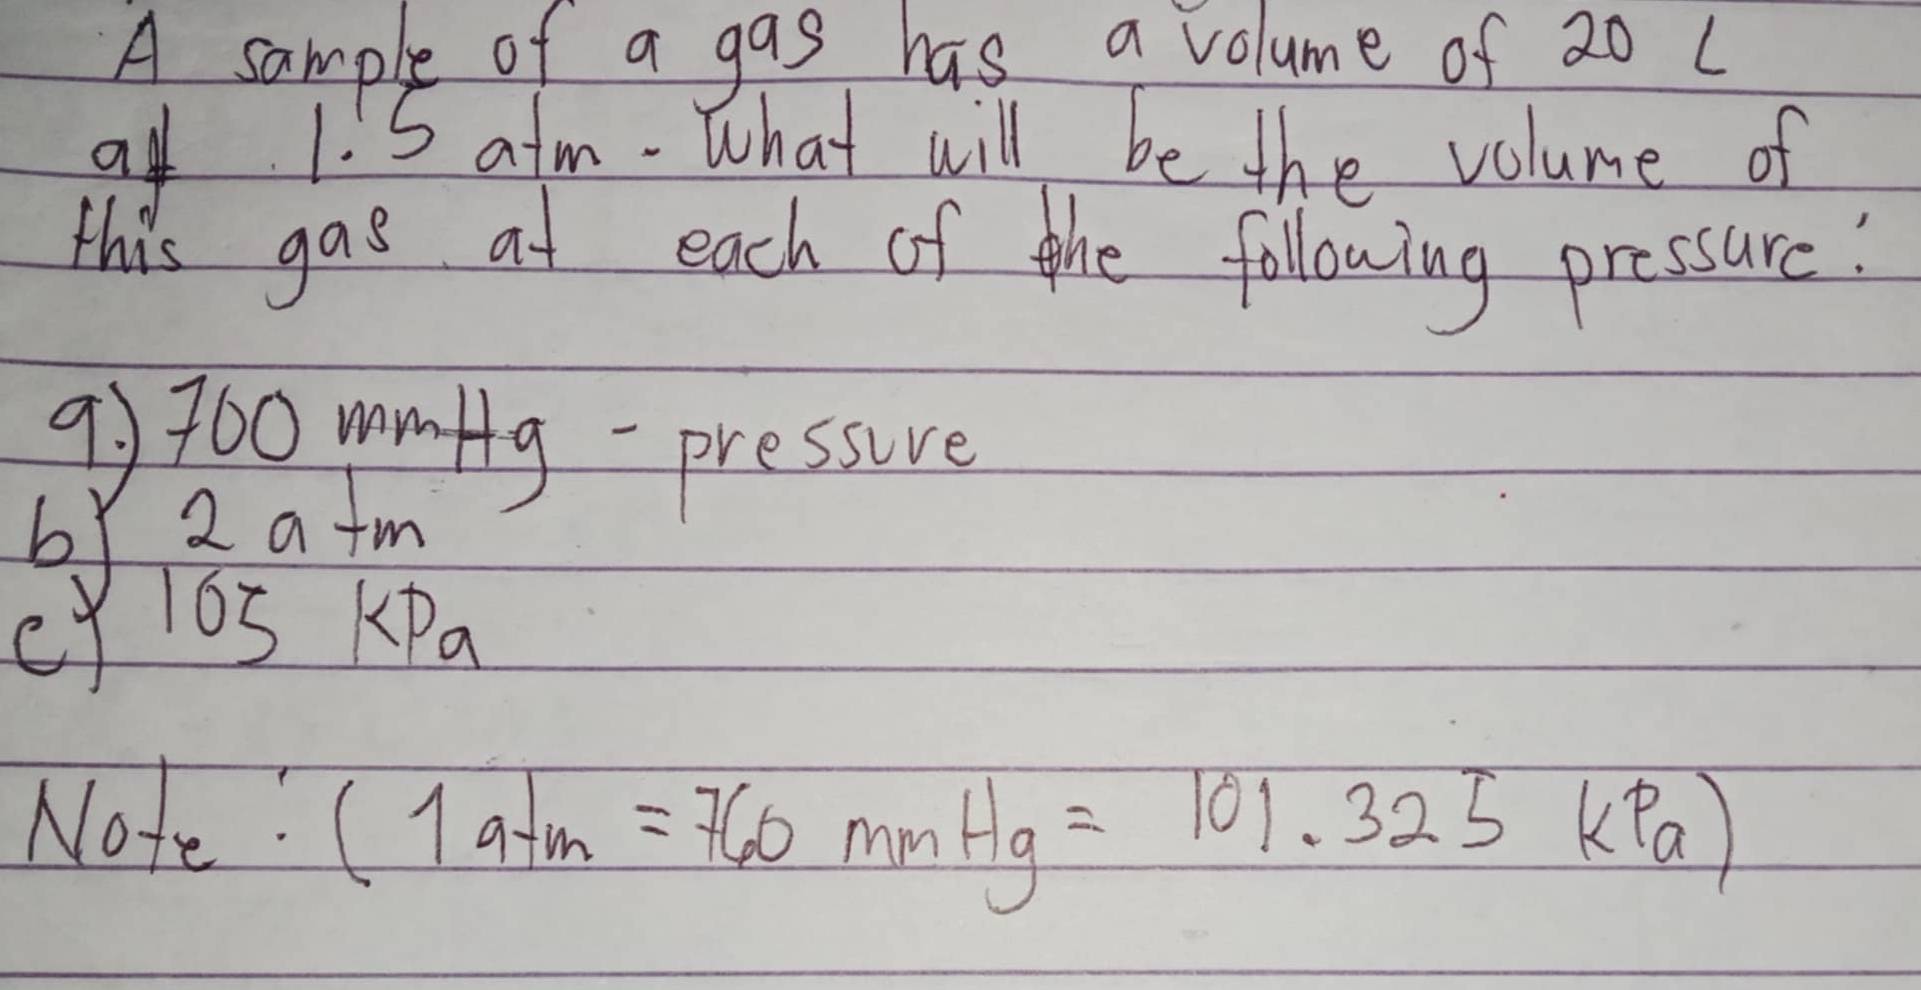 A sample of a gas has a volume of 20 L
at 1.5 atm. What will be the volume of
this gas at each of the following pressure:
a.) 700 mmHg - pressure
b) 2 atm
c) 105 KPa
Note: (1 atm = 760 mmHg = 101.325 kPa)